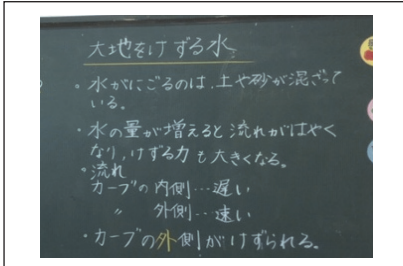 大地をけずる水
・水がにごるのは、土や砂が混ざって
いる。
・水の量が増えると流れがはやく
なり、けずる力も大きくなる。
・流れ
カーブの内側…遅い
〃 外側…速い
・カーブの外側がけずられる。